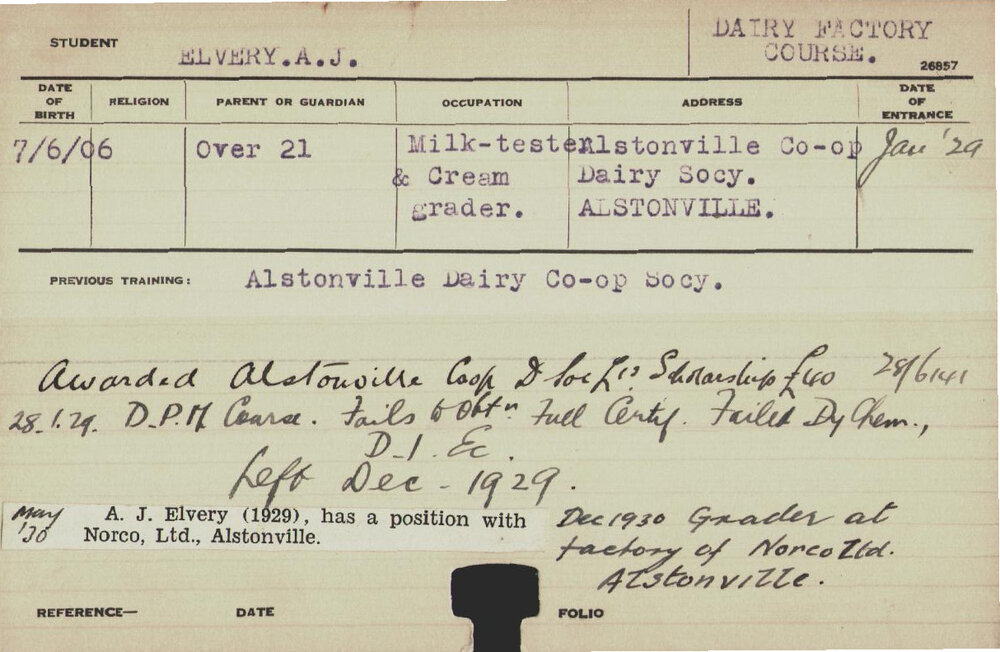 STUDENT ELVERY.A.J. DAIRY FACTORY
COURSE. 26857
DATE OF BIRTH RELIGION PARENT OR GUARDIAN OCCUPATION ADDRESS DATE OF ENTRANCE
7/6/06 Over 21 Milk-tester Alstonville Co-op Jan '29
& Cream Dairy Socy.
grader. ALSTONVILLE.
PREVIOUS TRAINING: Alstonville Dairy Co-op Socy.
Awarded Alstonville Coop D Soc Scholarship £40
28.1.29. D.P.M Course. Fails to Obtn Full Certif. Failed Dy Chem.,
D.I. Ec.
Left Dec - 1929.
May '30 A. J. Elvery (1929), has a position with
Norco, Ltd., Alstonville.
Dec 1930 Grader at
factory of Norco Ltd.
Alstonville.
REFERENCE— DATE FOLIO